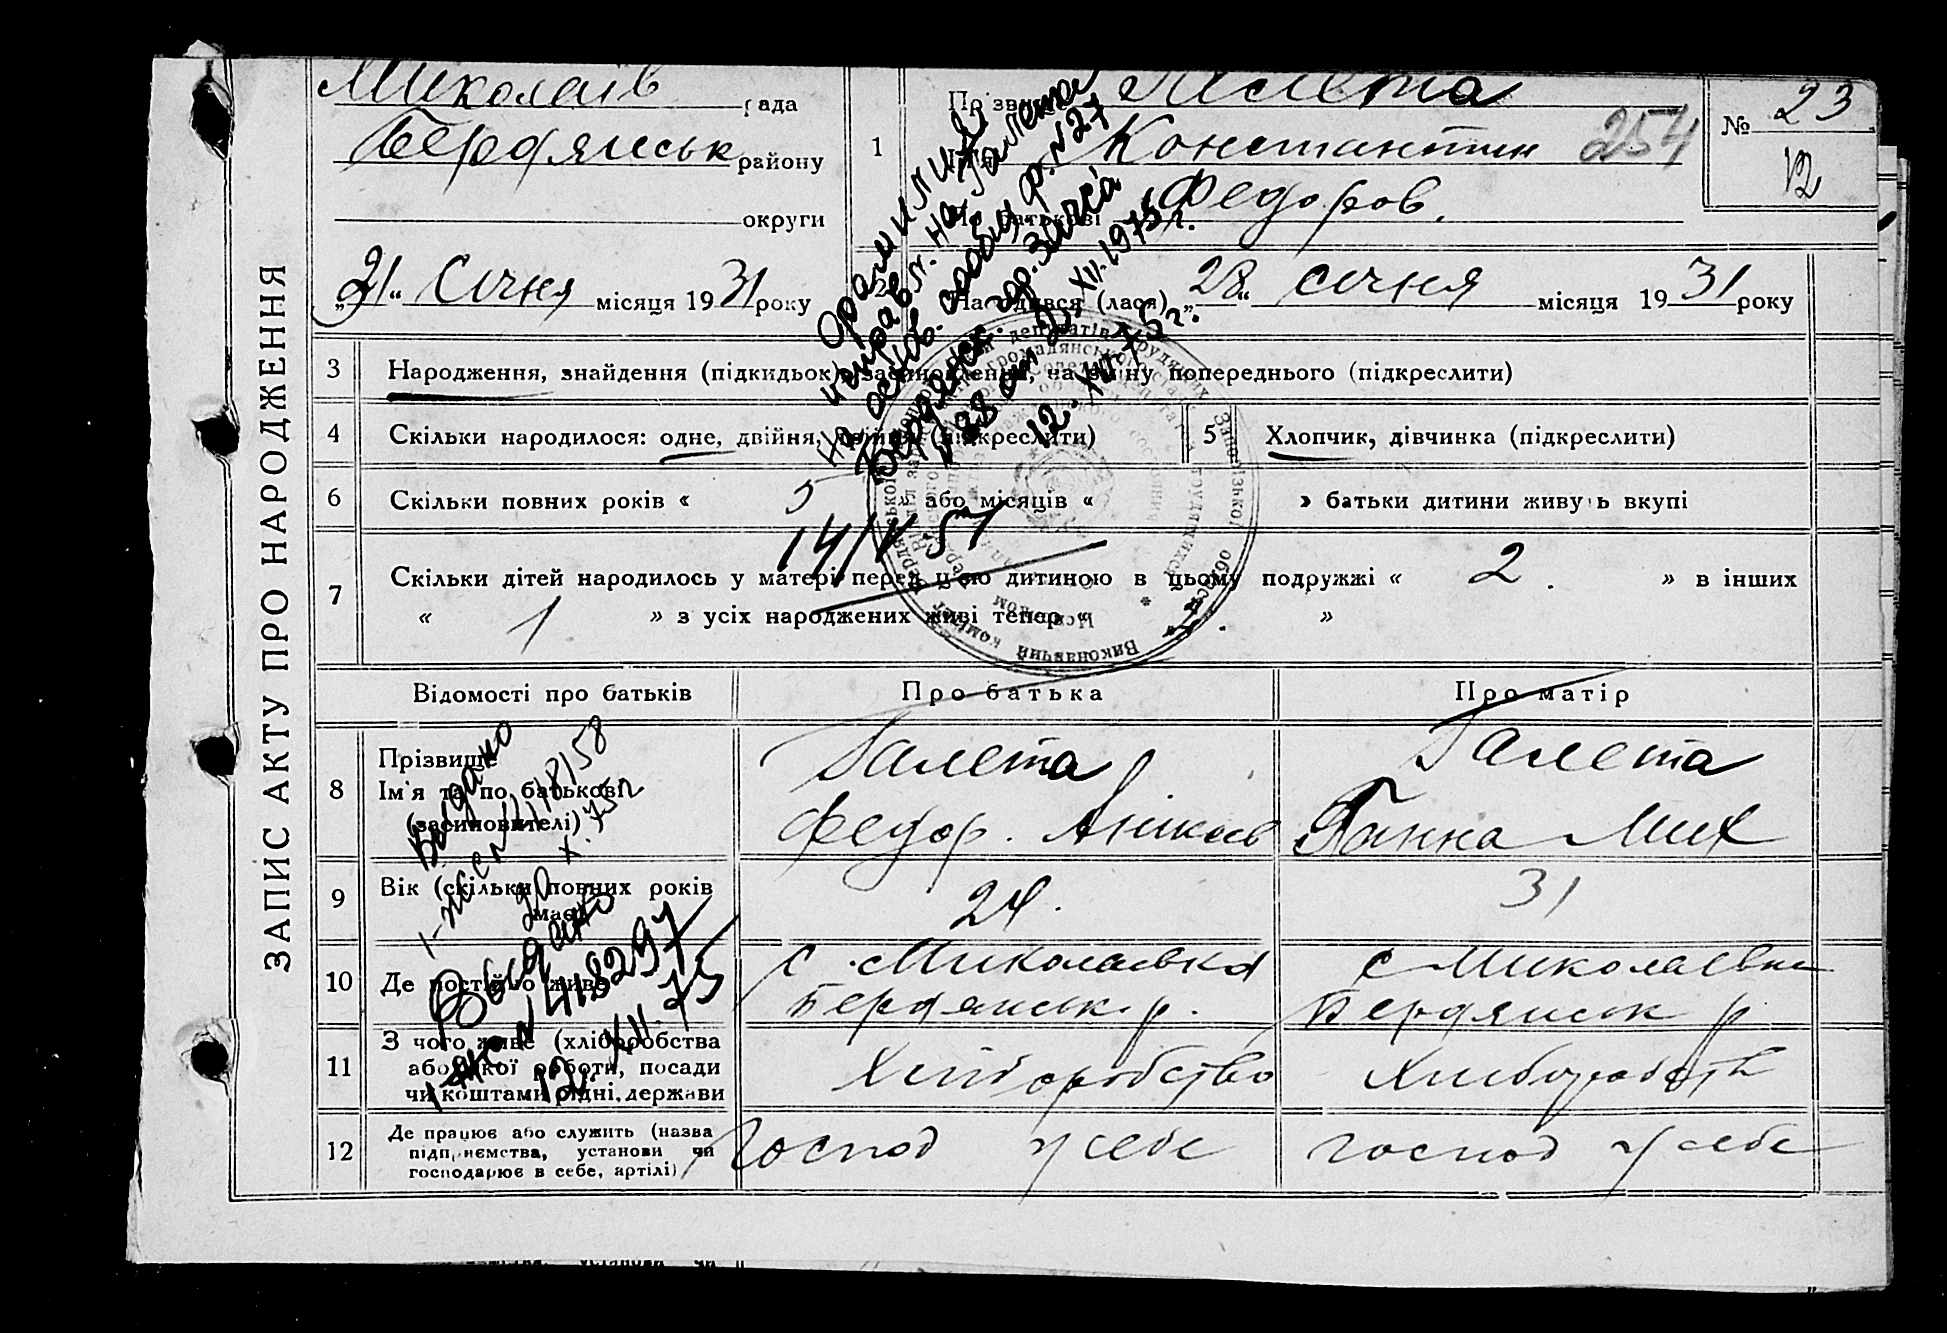 ЗАПИС АКТУ ПРО НАРОДЖЕННЯ
Миколаїв рада
Бердянськ району
округи
„21“ Січня місяця 1931 року
1
Константин 254
По батькові Федоров.
№ 23
12
Народився (лася) „28“ січня місяця 1931 року
фамилия
исправл. на Галета
на основ. сообщ. ф. №27
Бердянск гр. загса
12.XII.75г.
3 Народження, знайдення (підкидьок), засиновлення, на зміну попереднього (підкреслити)
4 Скільки народилося: одне, двійня, трійня (підкреслити)
5 Хлопчик, дівчинка (підкреслити)
6 Скільки повних років « 5 » або місяців « » батьки дитини живуть вкупі
7 Скільки дітей народилось у матері перед цією дитиною в цьому подружжі « 2. » в інших
« 1 » з усіх народжених живі тепер « »
Відомості про батьків
Про батька
Про матір
8 Прізвище
Ім'я та по батькові
(засиновителі)
Галета
Федор.
Галета
Ганна Мих
9 Вік (скільки повних років має)
24.
31
10 Де постійно живе
с. Миколаївка
Бердянськ р.
с Миколаївка
Бердянськ р
11 З чого живе (хліборобства
або якої роботи, посади
чи коштами рідні, держави
Хліборобство
12 Де працює або служить (назва
підприємства, установи чи
господарює в себе, артілі)
господ у себе
господ у себе
Выдано
Выдано
12.XII.75